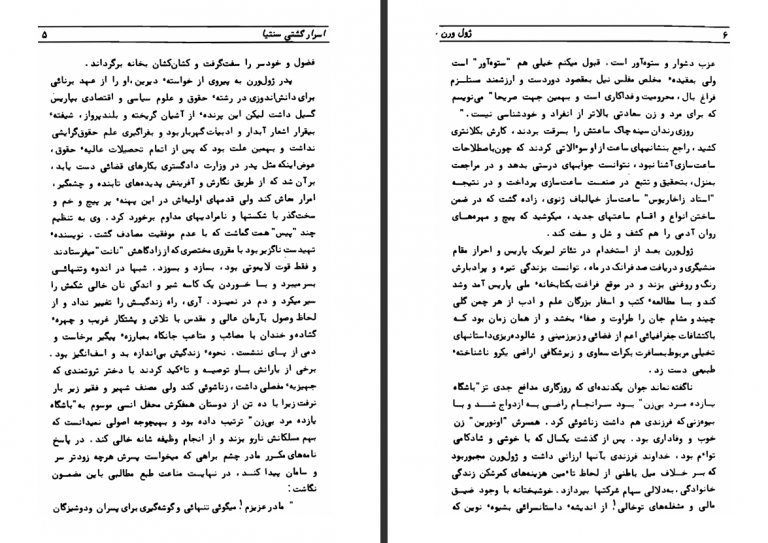 اسرار گشتی سنتیا ۵
فضول و خودسر را سفت‌گرفت و کشان‌کشان بخانه برگرداند .
پدر ژول‌ورن به پیروی از خواستهٔ دیرین، او را از عهد برنائی
برای دانش‌اندوزی در رشتهٔ حقوق و علوم سیاسی و اقتصادی بپاریس
گسیل داشت لیکن این پرندهٔ از آشیان گریخته و بلندپرواز، شیفتهٔ
بیقرار اشعار آبدار و ادبیات گهربار بود و بفراگیری علم حقوق‌گرایشی
نداشت و بهمین علت بود که پس از اتمام تحصیلات عالیهٔ حقوق ،
عوض‌اینکه مثل پدر در وزارت دادگستری بکارهای قضائی دست یابد ،
برآن شد که از طریق نگارش و آفرینش پدیده‌های تابنده و چشمگیر ،
امرار معاش کند ولی قدمهای اولیه‌اش در این پهنهٔ پر پیچ و خم و
سخت‌گذر با شکستها و نامرادیهای مداوم برخورد کرد . وی به تنظیم
چند "پیس" همت گماشت که با عدم موفقیت مصادف گشت . نویسندهٔ
تهیدست ناگزیر بود با مقرری مختصری که از زادگاهش "نانت" میفرستادند
و فقط قوت لایموتی بود ، بسازد و بسوزد . شبها در اندوه وتنهائی
بسر میبرد و با خوردن یک کاسه شیر و اندکی نان خالی شکمش را
سیر میکرد و دم در نمیزد . آری ، راه زندگیش را تغییر نداد و از
لحاظ وصول بآرمان عالی و مقدس با تلاش و پشتکار غریب و چهرهٔ
گشاده و خندان با مصائب و متاعب جانکاه بمبارزهٔ پیگیر برخاست و
دمی از پای ننشست . نحوهٔ زندگیش بی‌اندازه بد و اسف‌انگیز بود .
برخی از یارانش باو توصیه و تأکید کردند با دختر ثروتمندی که
جهیزیهٔ مفصلی داشت ، زناشوئی کند ولی مصنف شهیر و فقیر زیر بار
نرفت زیرا با ده تن از دوستان همفکرش محفل انسی موسوم به "باشگاه
یازده مرد بی‌زن" ترتیب داده بود و بهیچوجه اصولی نمیدانست که
بهم مسلکانش نارو بزند و از انجام وظیفه شانه خالی کند . در پاسخ
نامه‌های مکرر مادر چشم براهی که میخواست پسرش هرچه زودتر سر
و سامان پیدا کند ، در نهایت مناعت طبع مطالبی باین مضمون
نگاشت :
" مادر عزیزم ! میگوئی تنهائی و گوشه‌گیری برای پسران ودوشیزگان
ژول ورن . ۶
عزب دشوار و ستوه‌آور است . قبول میکنم خیلی هم "ستوه‌آور" است
ولی بعقیدهٔ مخلص مفلس نیل بمقصود دوردست و ارزشمند مستلزم
فراغ بال ، محرومیت و فداکاری است و بهمین جهت صریحا" می‌نویسم
که برای مرد و زن سعادتی بالاتر از انفراد و خودشناسی نیست . "
روزی رندان سینه چاک ساعتش را بسرقت بردند ، کارش بکلانتری
کشید ، راجع بنشانیهای ساعت از او سوالاتی کردند که چون‌باصطلاحات
ساعت‌سازی آشنا نبود ، نتوانست جوابهای درستی بدهد و در مراجعت
بمنزل، بتحقیق و تتبع در صنعت ساعت‌سازی پرداخت و در نتیجه
"استاد زاخاریوس" ساعت‌ساز خیالباف ژنوی ، زاده گشت که در ضمن
ساختن انواع و اقسام ساعتهای جدید ، میکوشید که پیچ و مهره‌های
روان آدمی را هم کشف و شل و سفت کند .
ژول‌ورن بعد از استخدام در تئاتر لیریک پاریس و احراز مقام
منشیگری و دریافت صد فرانک در ماه ، توانست بزندگی تیره و پرادبارش
رنگ و روغنی بزند و در موقع فراغت بکتابخانهٔ ملی پاریس آمد وشد
کند و با مطالعهٔ کتب و اسفار بزرگان علم و ادب از هر چمن گلی
چیند و مشام جان را طراوت و صفاٴ بخشد و از همان زمان بود کـه
باکتشافات جغرافیائی اعم از فضائی و زیرزمینی و شالوده‌ریزی‌داستانهای
تخیلی مربوط بمسافرت بکرات سماوی و زیرشکافی اراضی بکرو ناشناختهٔ
طبیعی دست زد .
ناگفته نماند جوان یکدنده‌ای که روزگاری مدافع جدی تز"باشگاه
یـازده مرد بی‌زن" بـود سرانجـام راضی بـه ازدواج شـد و بـا
بیوه‌زنی که فرزندی هم داشت زناشوئی کرد . همسرش "اونورین" زن
خوب و وفاداری بود . پس از گذشت یکسال که با خوشی و شادکامی
توأم بود ، خداوند فرزندی بآنها ارزانی داشت و ژول‌ورن مجبوربود
که بـر خـلاف میل باطنی از لحاظ تأمین هزینه‌های کمرشکن زندگی
خانوادگی، به‌دلالی سهام شرکتها بپردازد . خوشبختانه با وجود ضیـق
مالی و مشغله‌های توخالی ! از اندیشهٔ داستانسرائی بشیوهٔ نوین که